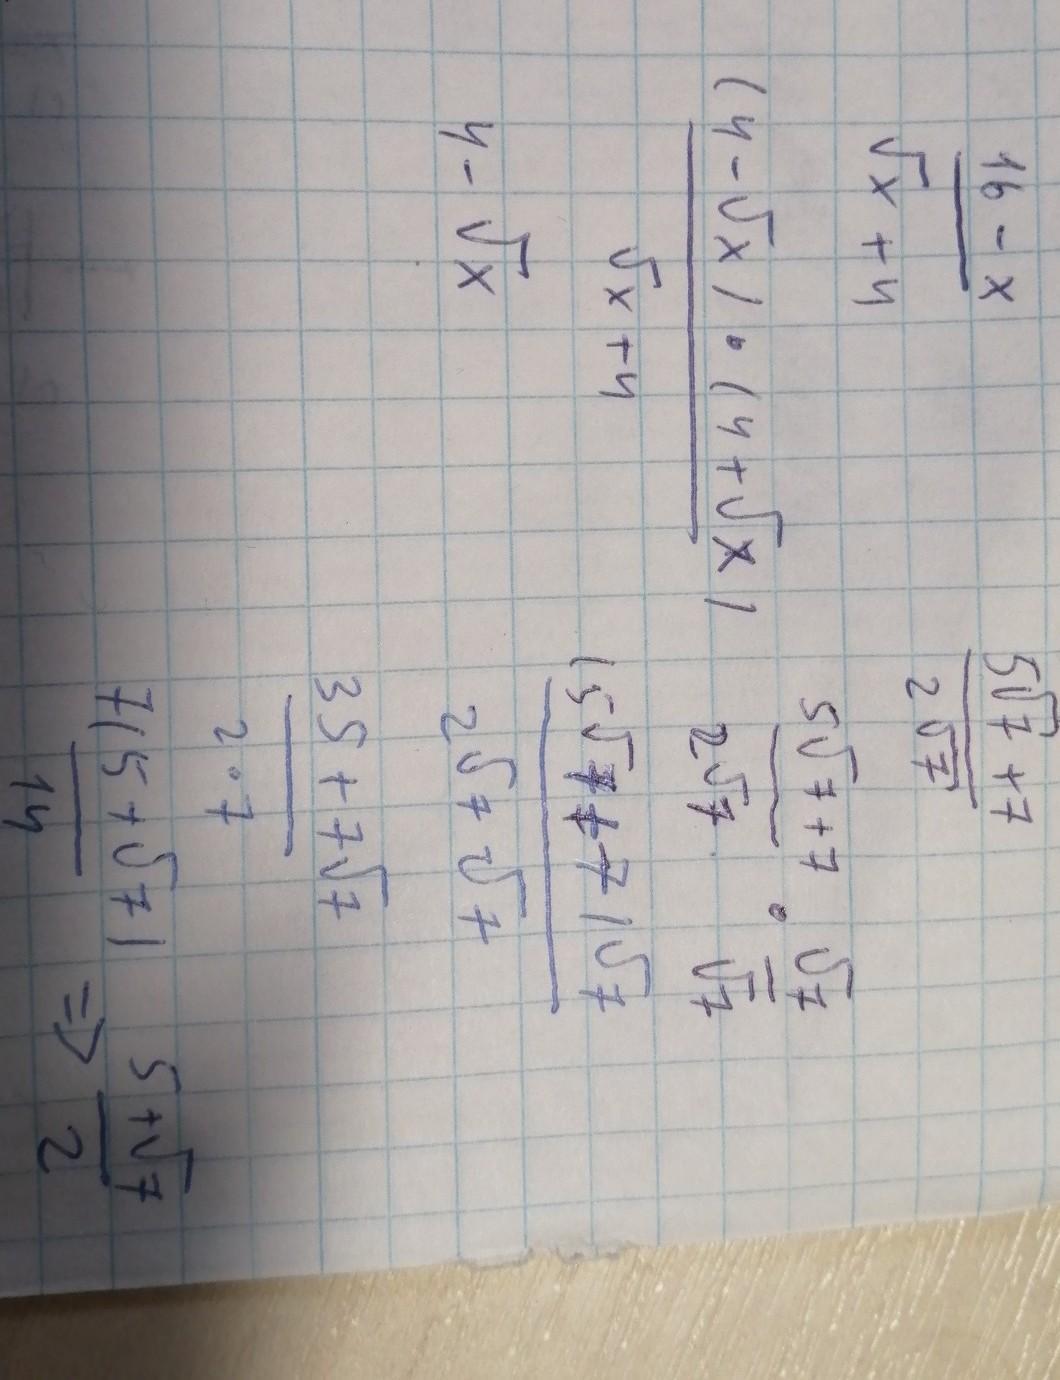 16 - x
√x + 4
(4 - √x) • (4 + √x)
√x + 4
4 - √x
5√7 + 7
2√7
5√7 + 7 • √7
2√7 √7
(5√7 + 7)√7
2√7 √7
35 + 7√7
2 • 7
7(5 + √7) ⇒ 5 + √7
14 2